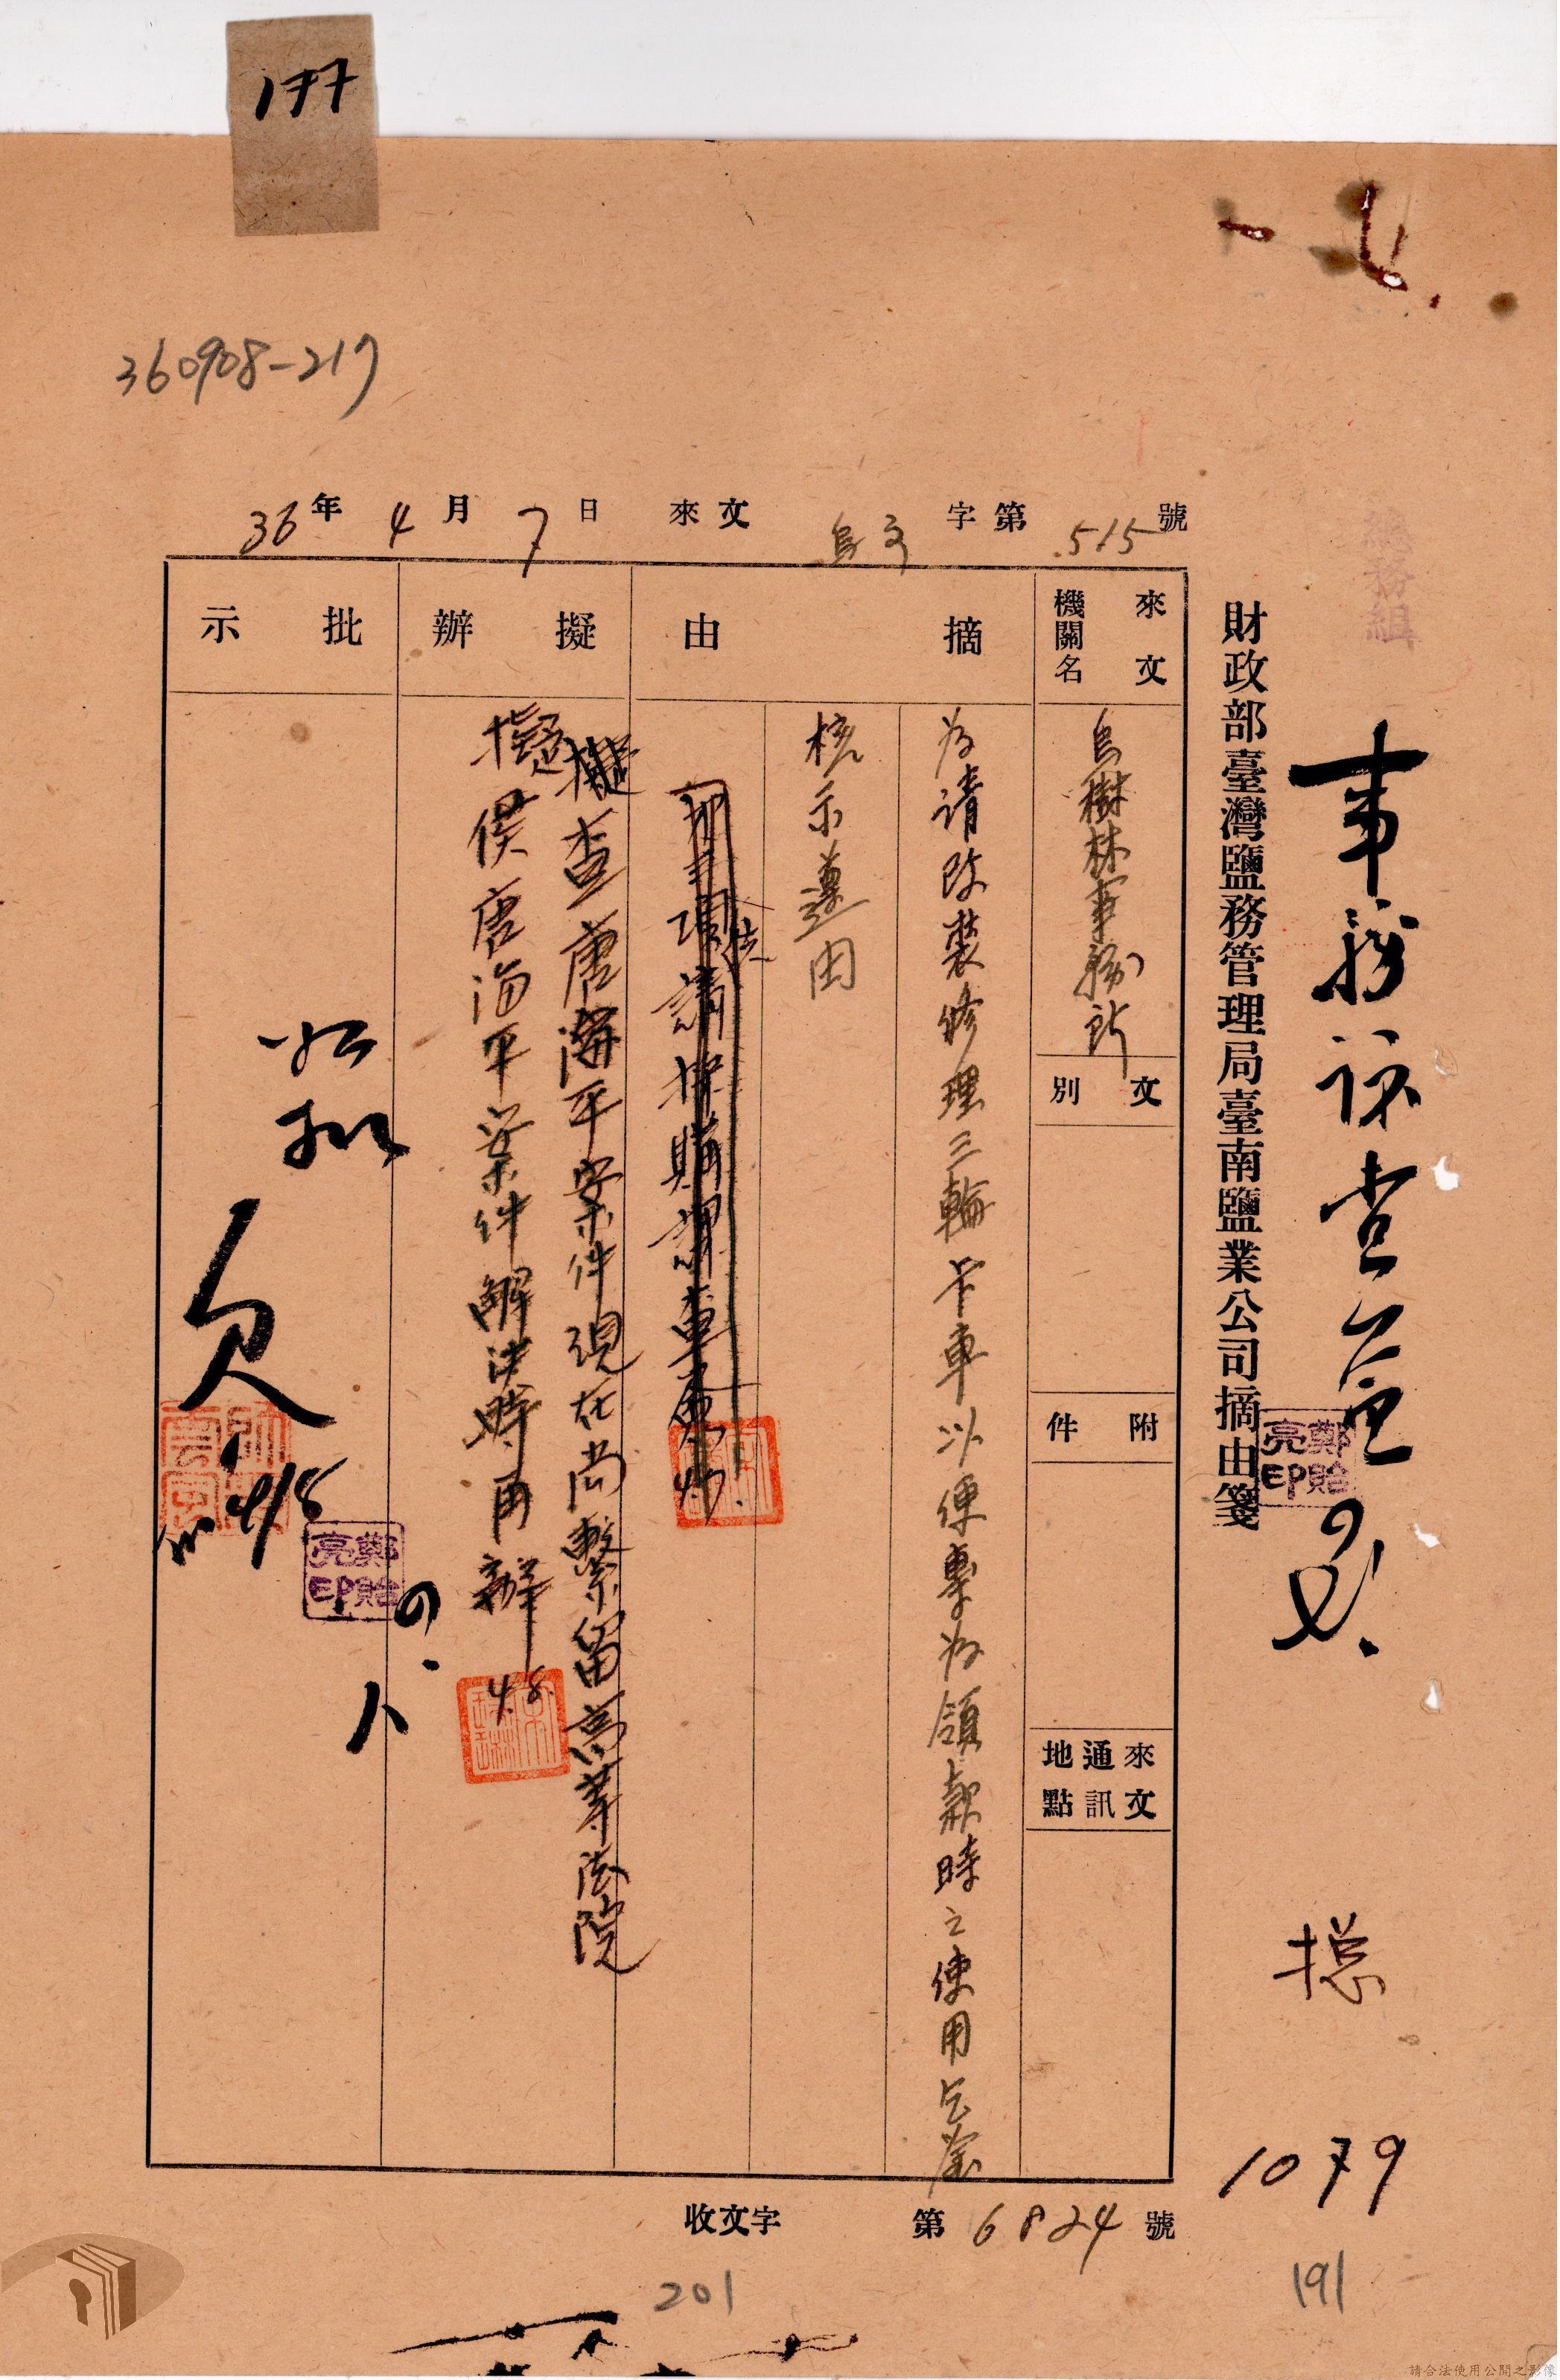 177
360908-217
36年4月7日 來文 烏字第515號
總務組
事務課查簽
鄭貽亮印
總
1079
財政部臺灣鹽務管理局臺南鹽業公司摘由箋
來文機關名
烏樹林事務所
文別
附件
來文通訊地點
摘由
為請改裝修理三輪卡車以便專為領款時之使用乞鑒
核示遵由
擬辦
查唐海平案件現在尚繫留高等法院
擬俟唐海平案件解決時再辦
4.8.
批示
如擬
4/8
鄭貽亮印
收文字第6824號
201
191
請合法使用公開之影像